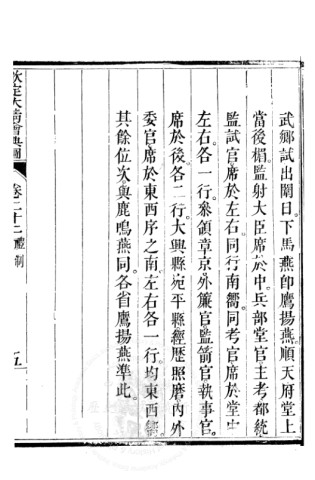 武鄉試出闈日。下馬燕即鷹揚燕。順天府堂上
當後楣。監射大臣席於中。兵部堂官主考都統
監試官席於左右。同行南嚮。同考官席於堂中
左右。各一行。參領章京外簾官監箭官執事官。
席於後。各二行。大興縣宛平縣經歷照磨內外
委官席於東西序之南。左右各一行。均東西嚮。
其餘位次與鹿鳴燕同。各省鷹揚燕準此。
欽定大清會典圖
卷二十二
禮制
五